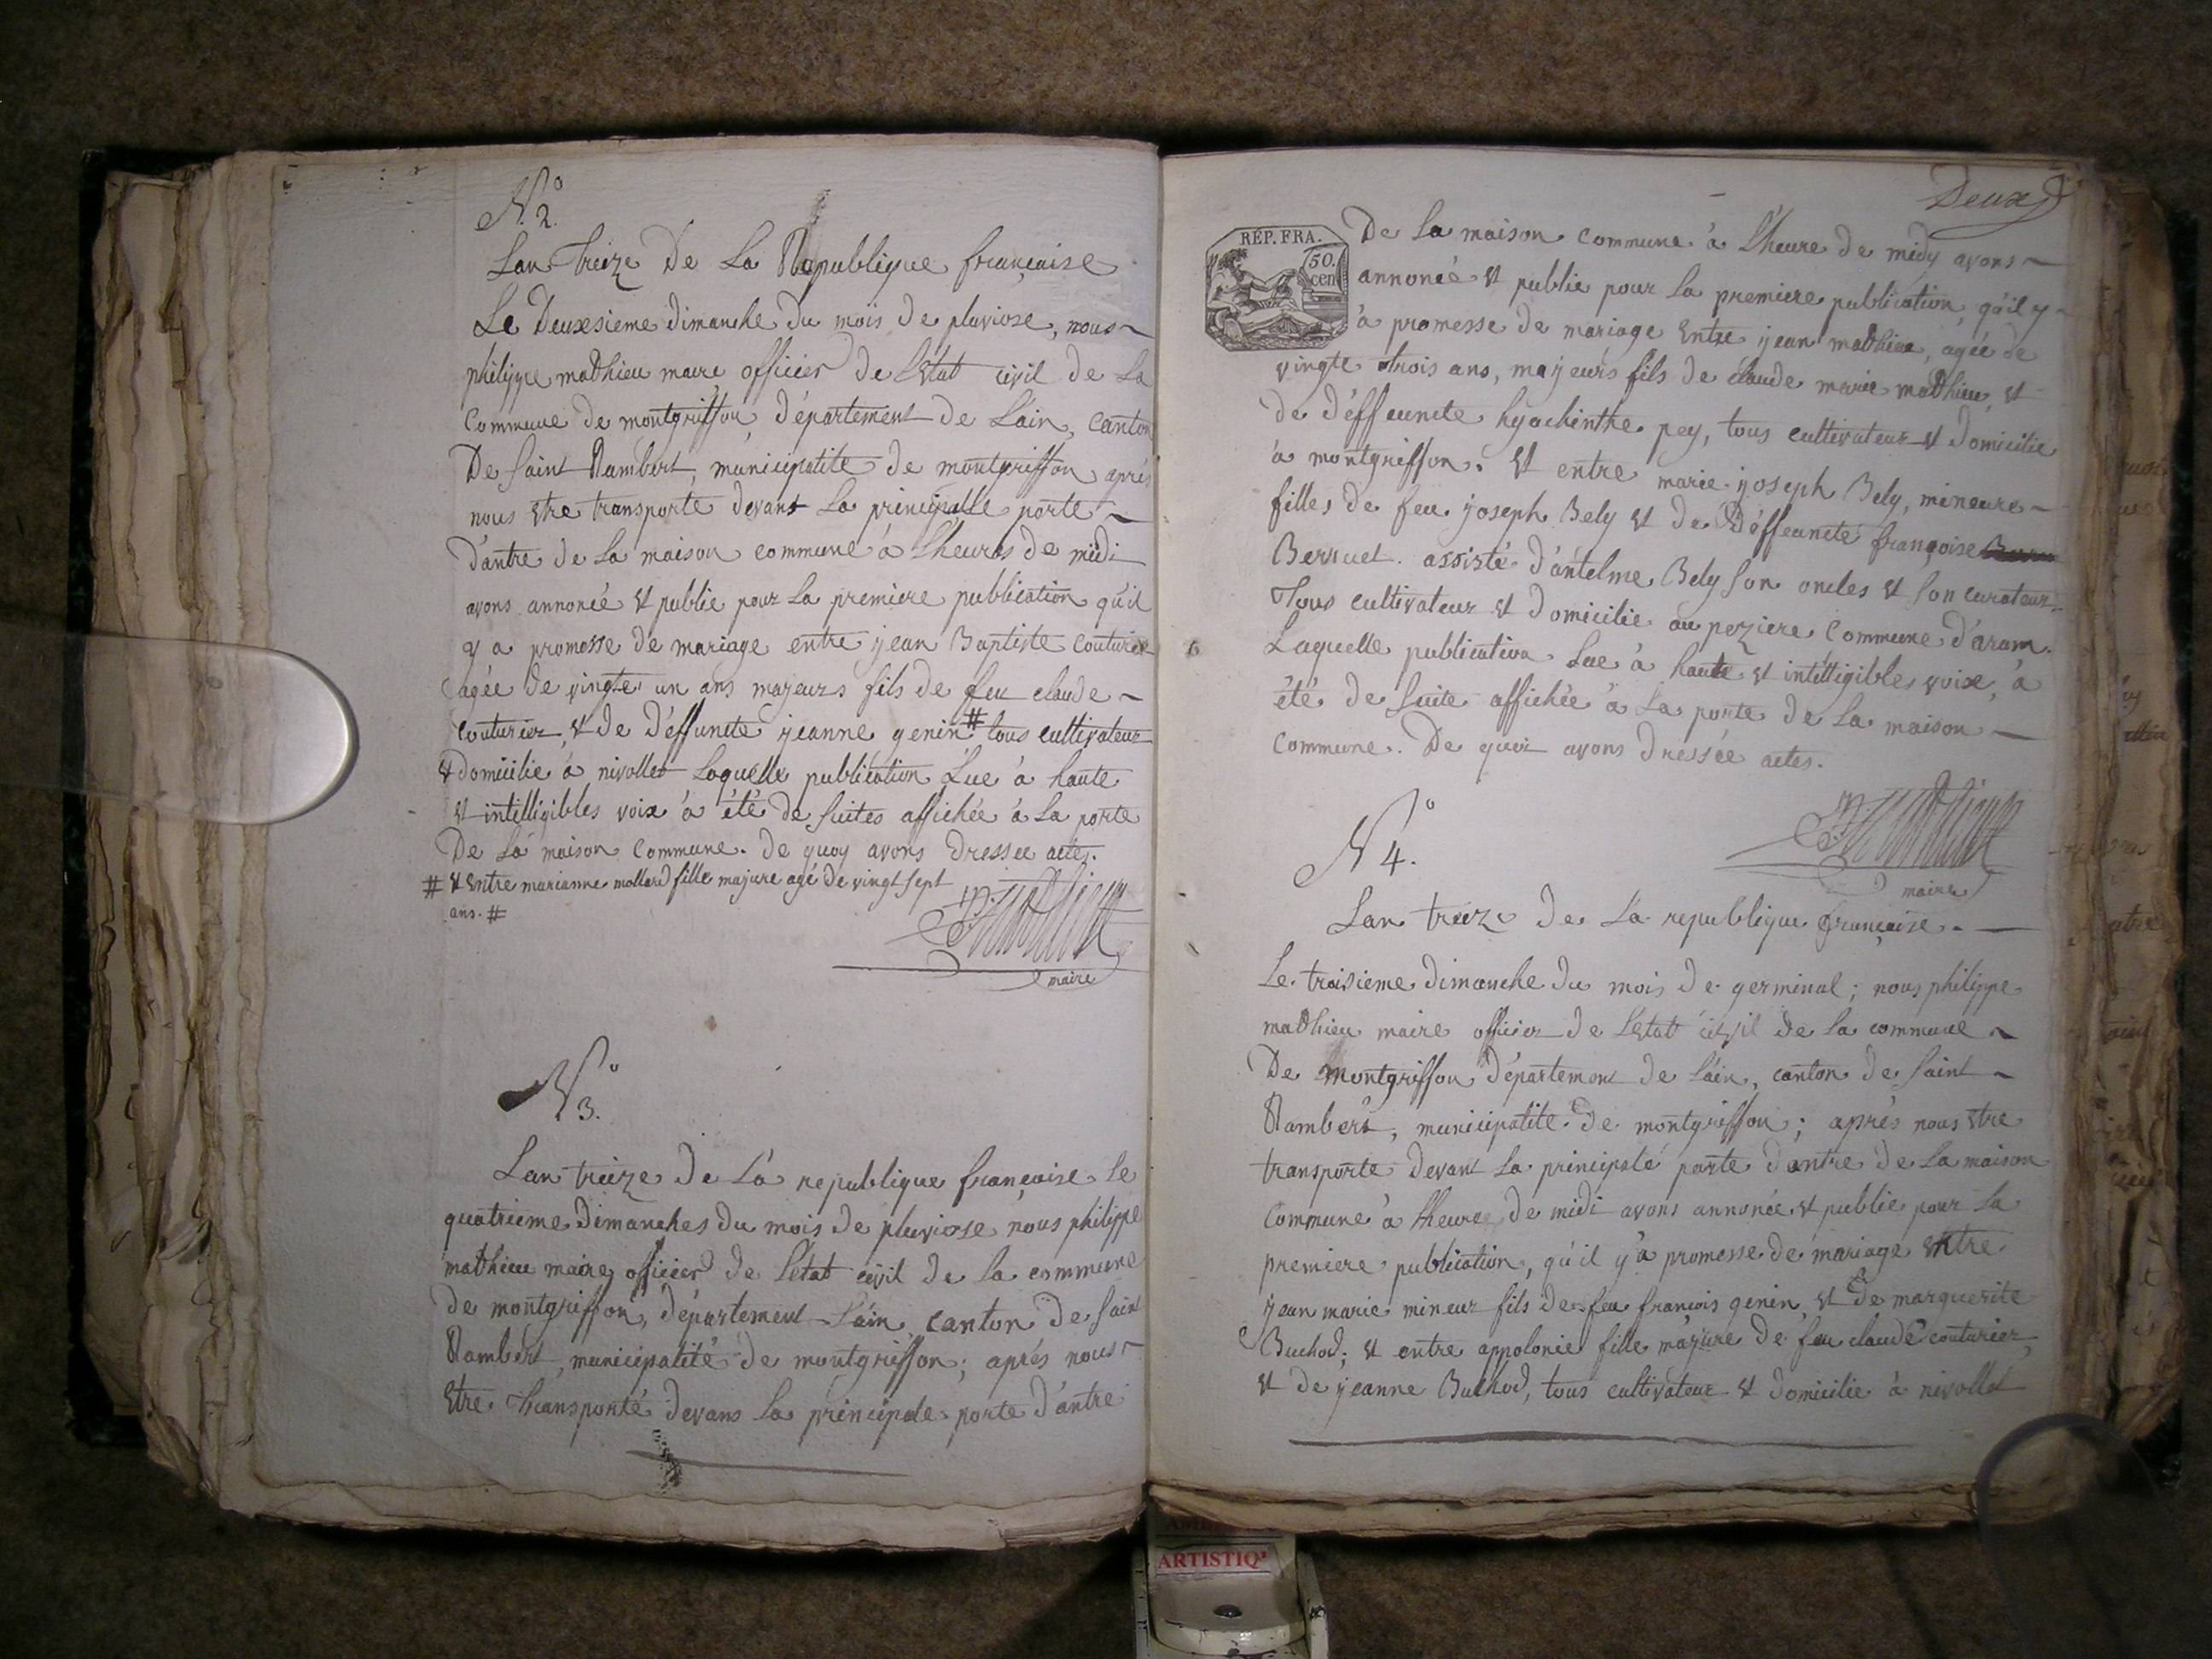 N.o 2.
Lan Treize De La Republique française
Le Deuxsieme dimanche Du mois De pluviose, nous
philippe mathieu maire officier De l'Etat civil de La
Commune De montgriffon, Département De L'ain, canton
De saint Rambert, municipalité De montgriffon après
nous etre transporté devant La principalle porte
D'antre De La maison commune à L'heures De midi
avons annoncé et publie pour La premiere publication qu'il
y a promesse De mariage entre jean Baptiste couturier
agée De vingte un ans majeurs fils De feu claude
couturier, et De Deffuncte jeanne genin # tous cultivateur
et domicilie à nivollet Laquelle publication Lue à haute
et intelligibles voix à été De suites affichée à La porte
De La maison commune. De quoy avons Dressee actes.
# et entre marianne mollard fille majure agé De vingt sept
ans. #
maire
N.o 3.
Lan treize De La republique française le
quatrieme Dimanches Du mois De pluviose nous philippe
mathieu maire officier De l'état civil De La commune
De montgriffon, Département L'ain canton De saint
Rambert, municipalité De montgriffon; après nous
etre transporté Devans La principale porte D'antre
Deux
RÉP. FRA.
50.
cen
De La maison commune à L'heure De midy avons
annoncé et publie pour La premiere publication, qu'il y
à promesse De mariage entre jean mathieu, agée De
vingte trois ans, majeurs fils De claude marie mathieu, et
De Déffeuncte hyachinthe pey, tous cultivateur et Domicilie
à montgriffon. et entre marie joseph Bely, mineure
filles De feu joseph Bely et De Déffeuncté françoise
Bernuet. assisté D'antelme Bely son oncles et son curateur.
Tous cultivateur et Domicilie au peziere Commune D'aram.
Laquelle publication Lue à haute et intélligibles voix, à
été De suite affichée à La porte De La maison
Commune. De quoi avons Dressée actes.
maire
N.o 4.
Lan treize De La republique française.
Le troisieme Dimanche Du mois De germinal; nous philippe
mathieu maire officier De L'etat civil De La commune
De Montgriffon Département De L'ain, canton De saint
Rambert, municipalité De montgriffon; après nous etre
transporte Devant La principale porte Dantre De La maison
Commune à L'heure De midi avons annoncée et publie pour La
premiere publication, qu'il y'a promesse De mariage entre
jean marie mineur fils De feu francois genin, et De marguerite
Buchod; et entre appolonie fille majure De feu claude couturier,
et De jeanne Buchod, tous cultivateur et Domicilie à nivollet
ARTISTIQ'